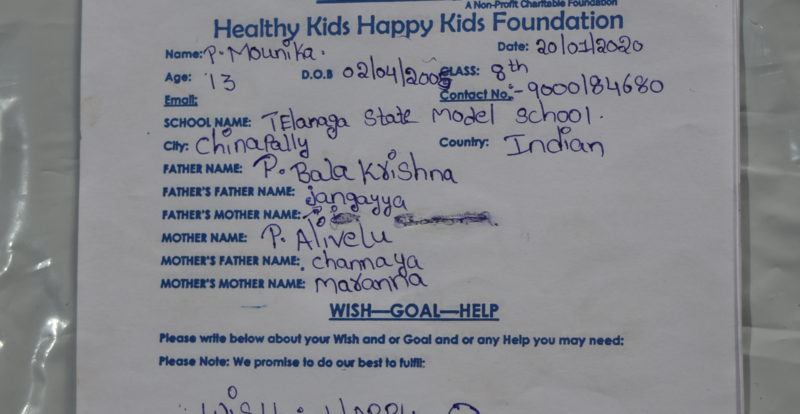 A Non-Profit Charitable Foundation
Healthy Kids Happy Kids Foundation
Name: P. Mounika. Date: 20/01/2020
Age: 13 D.O.B 02/04/2005 CLASS: 8th
Email: Contact No.:- 9000184680
SCHOOL NAME: TElanaga State Model School.
City: Chinapally Country: Indian
FATHER NAME: P. Bala Krishna
FATHER'S FATHER NAME: jangayya
FATHER'S MOTHER NAME:
MOTHER NAME: P. Alivelu
MOTHER'S FATHER NAME: channaya
MOTHER'S MOTHER NAME: Maranna
WISH—GOAL—HELP
Please write below about your Wish and or Goal and or any Help you may need:
Please Note: We promise to do our best to fulfil: